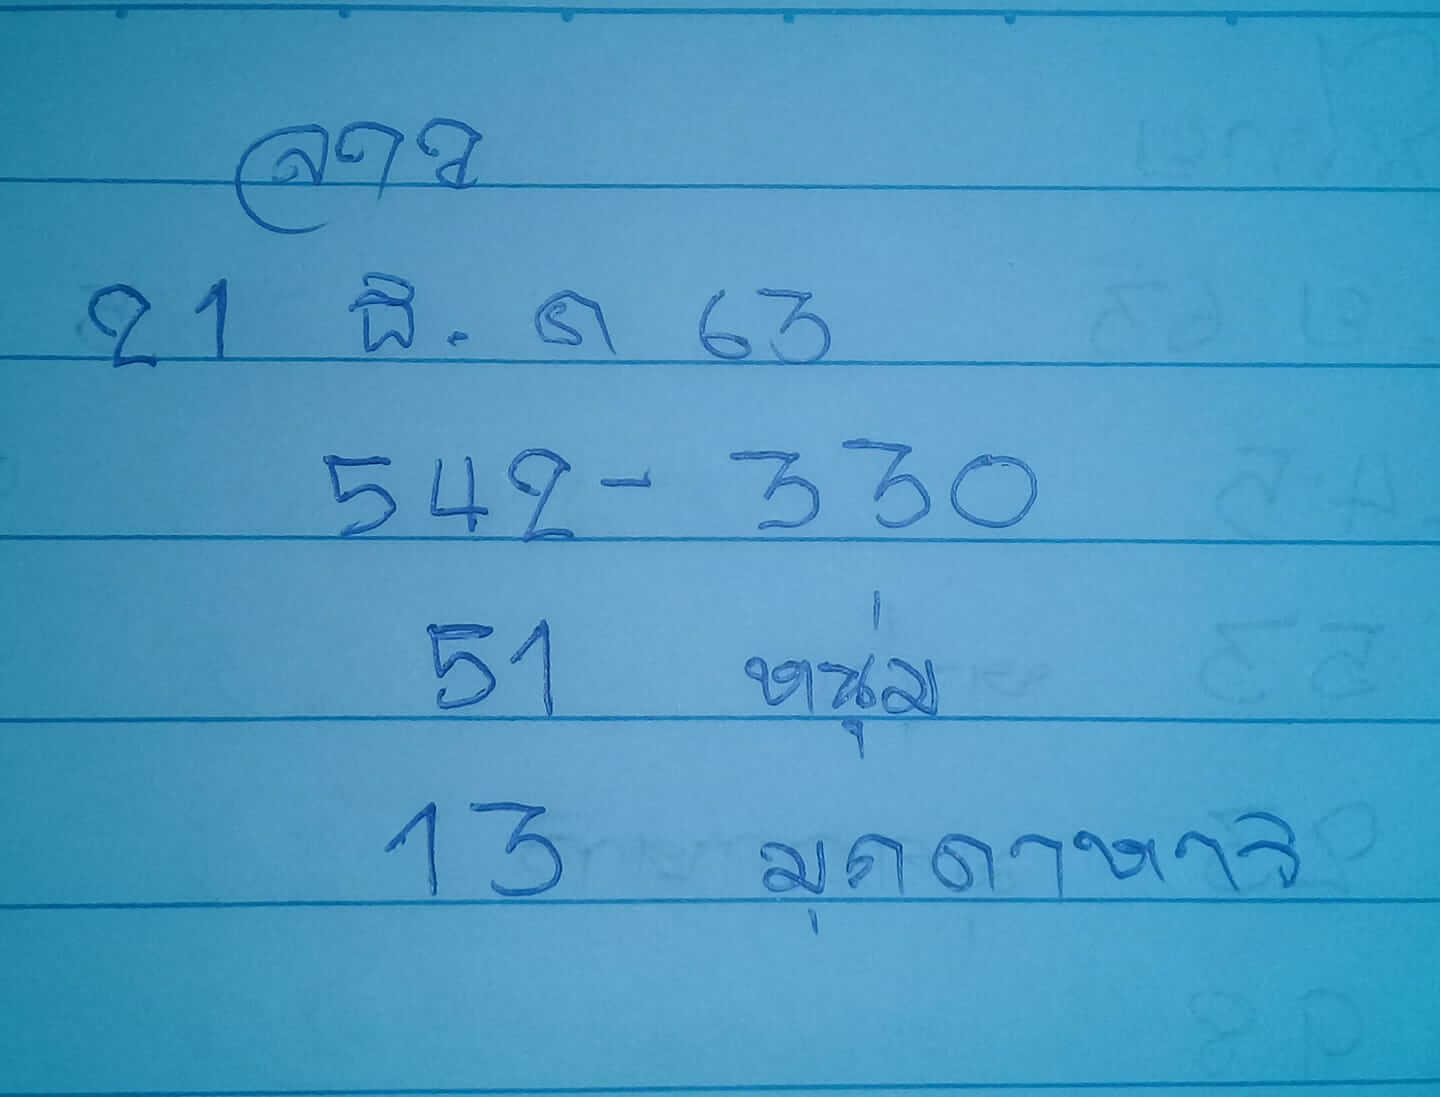 ลาว
21 มิ. ค 63
542 - 330
51 หนุ่ม
13 มุกดาหาร